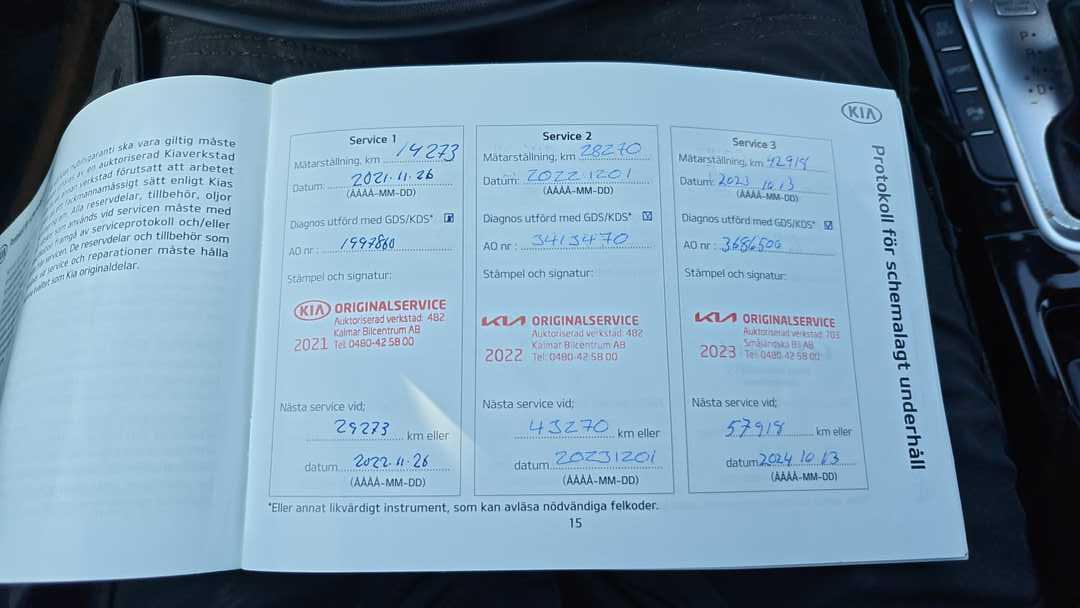 nybilsgaranti ska vara giltig måste
av en auktoriserad Kiaverkstad
verkstad förutsatt att arbetet
fackmannamässigt sätt enligt Kias
Alla reservdelar, tillbehör, oljor
som används vid servicen måste med
framgå av serviceprotokoll och/eller
servicen. De reservdelar och tillbehör som
vid service och reparationer måste hålla
kvalitet som Kia originaldelar.
KIA
Protokoll för schemalagt underhåll
Service 1
Mätarställning, km 14273
Datum: 2021.11.26
(ÅÅÅÅ-MM-DD)
Diagnos utförd med GDS/KDS*
AO nr : 1997860
Stämpel och signatur:
KIA ORIGINALSERVICE
Auktoriserad verkstad: 482
Kalmar Bilcentrum AB
2021 Tel: 0480-42 58 00
Nästa service vid;
29273 km eller
datum 2022.11.26
(ÅÅÅÅ-MM-DD)
Service 2
Mätarställning, km 28270
Datum: 20221201
(ÅÅÅÅ-MM-DD)
Diagnos utförd med GDS/KDS*
AO nr : 3413470
Stämpel och signatur:
KIA ORIGINALSERVICE
Auktoriserad verkstad: 482
Kalmar Bilcentrum AB
2022 Tel: 0480-42 58 00
Nästa service vid;
43270 km eller
datum 20231201
(ÅÅÅÅ-MM-DD)
Service 3
Mätarställning, km 42918
Datum: 2023 10 13
(ÅÅÅÅ-MM-DD)
Diagnos utförd med GDS/KDS*
AO nr : 3686500
Stämpel och signatur:
KIA ORIGINALSERVICE
Auktoriserad verkstad: 703
Småländska Bil AB
2023 Tel: 0480-42 58 00
Nästa service vid;
57918 km eller
datum 2024 10 13
(ÅÅÅÅ-MM-DD)
*Eller annat likvärdigt instrument, som kan avläsa nödvändiga felkoder.
15
P
R
N
D